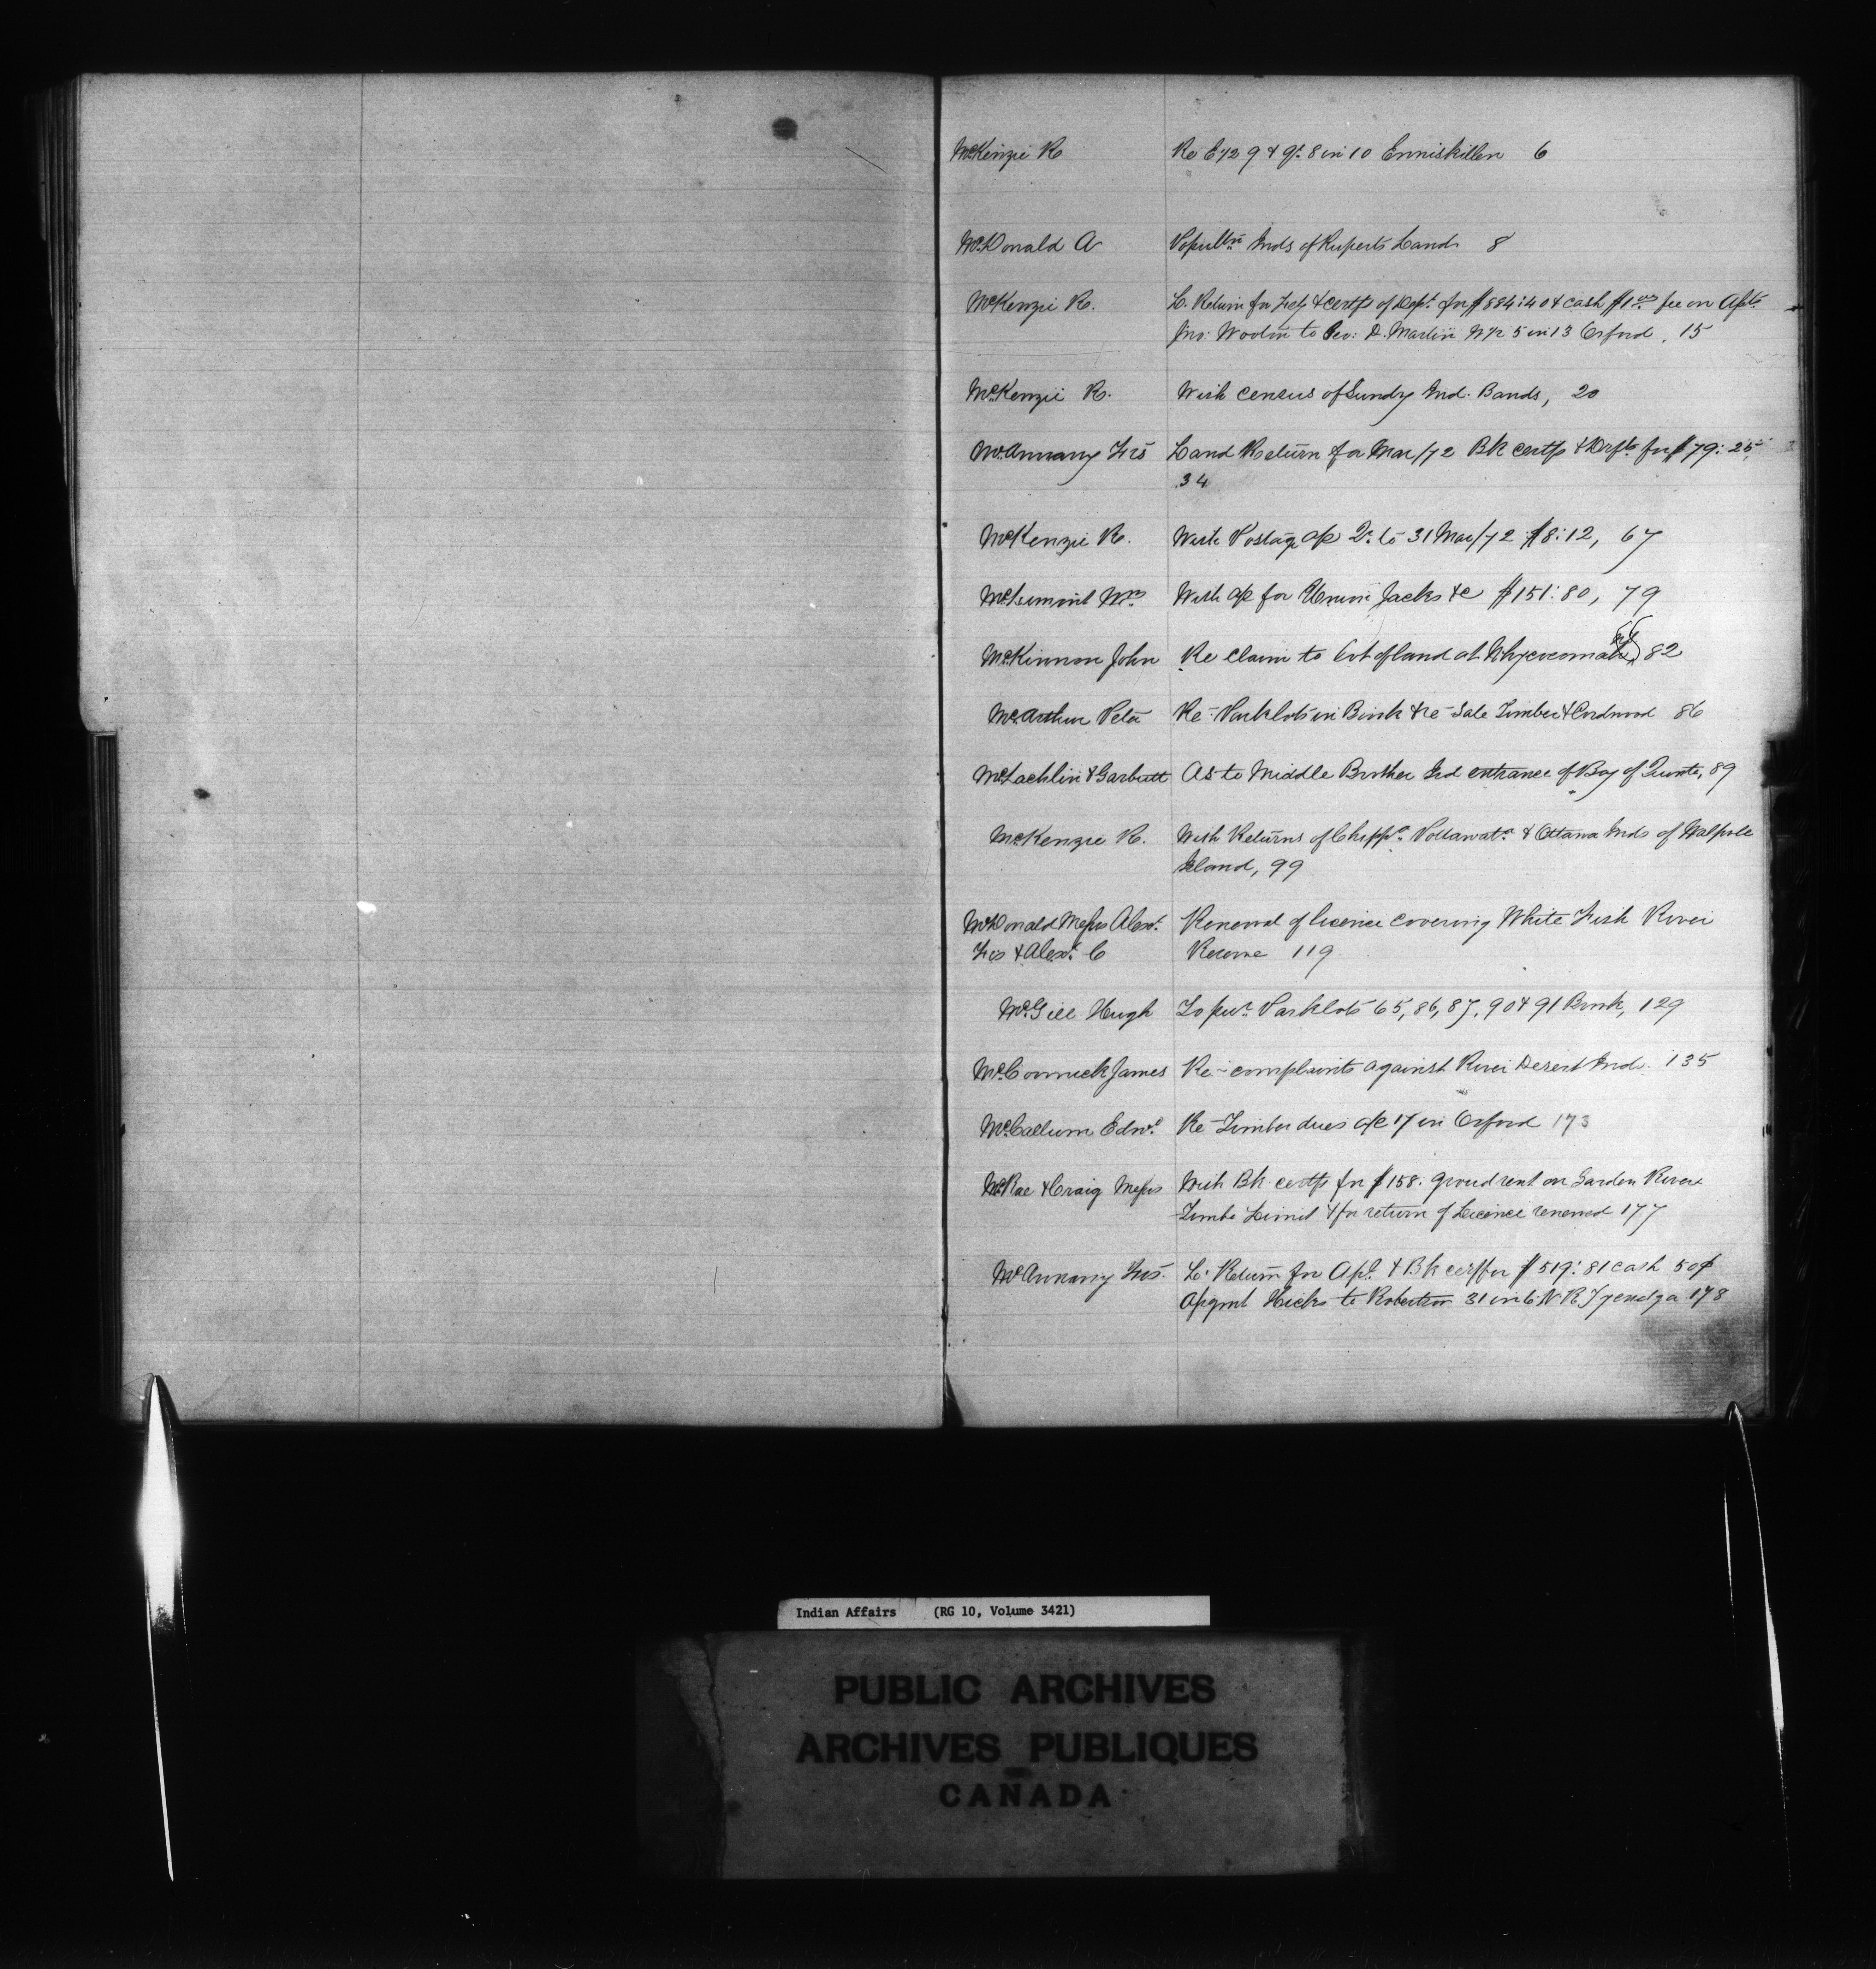 McKenzie R Re E 1/2 9 & 8 in 10 Enniskillen 6
McDonald A Inds of Ruperts Land 8
McKenzie R. L. Return for Feby & certfs of Dept. for $884:40 & cash $1.00 fee on
Jno: Wodin to Geo: D. Martin N 1/2 5 in 13 Orford, 15
McKenzie R. With census of Sundry Ind. Bands, 20
McAnnany Frs Land Return for Mar/72 Bk certfs & Drfts for $79:25
34
McKenzie R. With Postage a/c to 31 Mar/72 $8:12, 67
Wm With a/c for Union Jacks &c $151:80, 79
McKinnon John Re claim to lot of land at 82
McArthur Peter Re- Parklots in Bronk & re- Sale Timber & Cordwood 86
McLachlin & Garbutt As to Middle Brother Isd entrance of Bay of Quinte, 89
McKenzie R. With Returns of Chippa. Pottawata. & Ottawa Inds of Walpole
Island, 99
McDonald Messrs Alexr. Renewal of licence covering White Fish River
Frs & Alexr. C Reserve 119
McGill Hugh To pur. Parklots 65, 86, 87, 90 & 91 Bronk, 129
McCormick James Re- complaints against River Desert Inds. 135
McCallum Edwd. Re- Timber dues a/c 17 in Orford 173
McRae & Craig Messrs With Bk certfs for $158. ground rent on Garden River
Timbr Limit & for return of Licence renewed 177
McAnnany Frs. L. Return for Apl. & Bk certf for $519:81 cash 50¢
Asgmt Hicks to Robertson 31 in 6 N R Tyendga 178
Indian Affairs (RG 10, Volume 3421)
PUBLIC ARCHIVES
ARCHIVES PUBLIQUES
CANADA